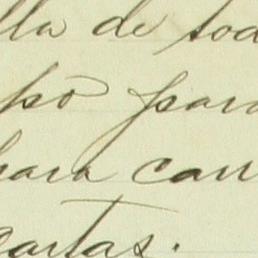 lla de tod
po para
para can
cartas.